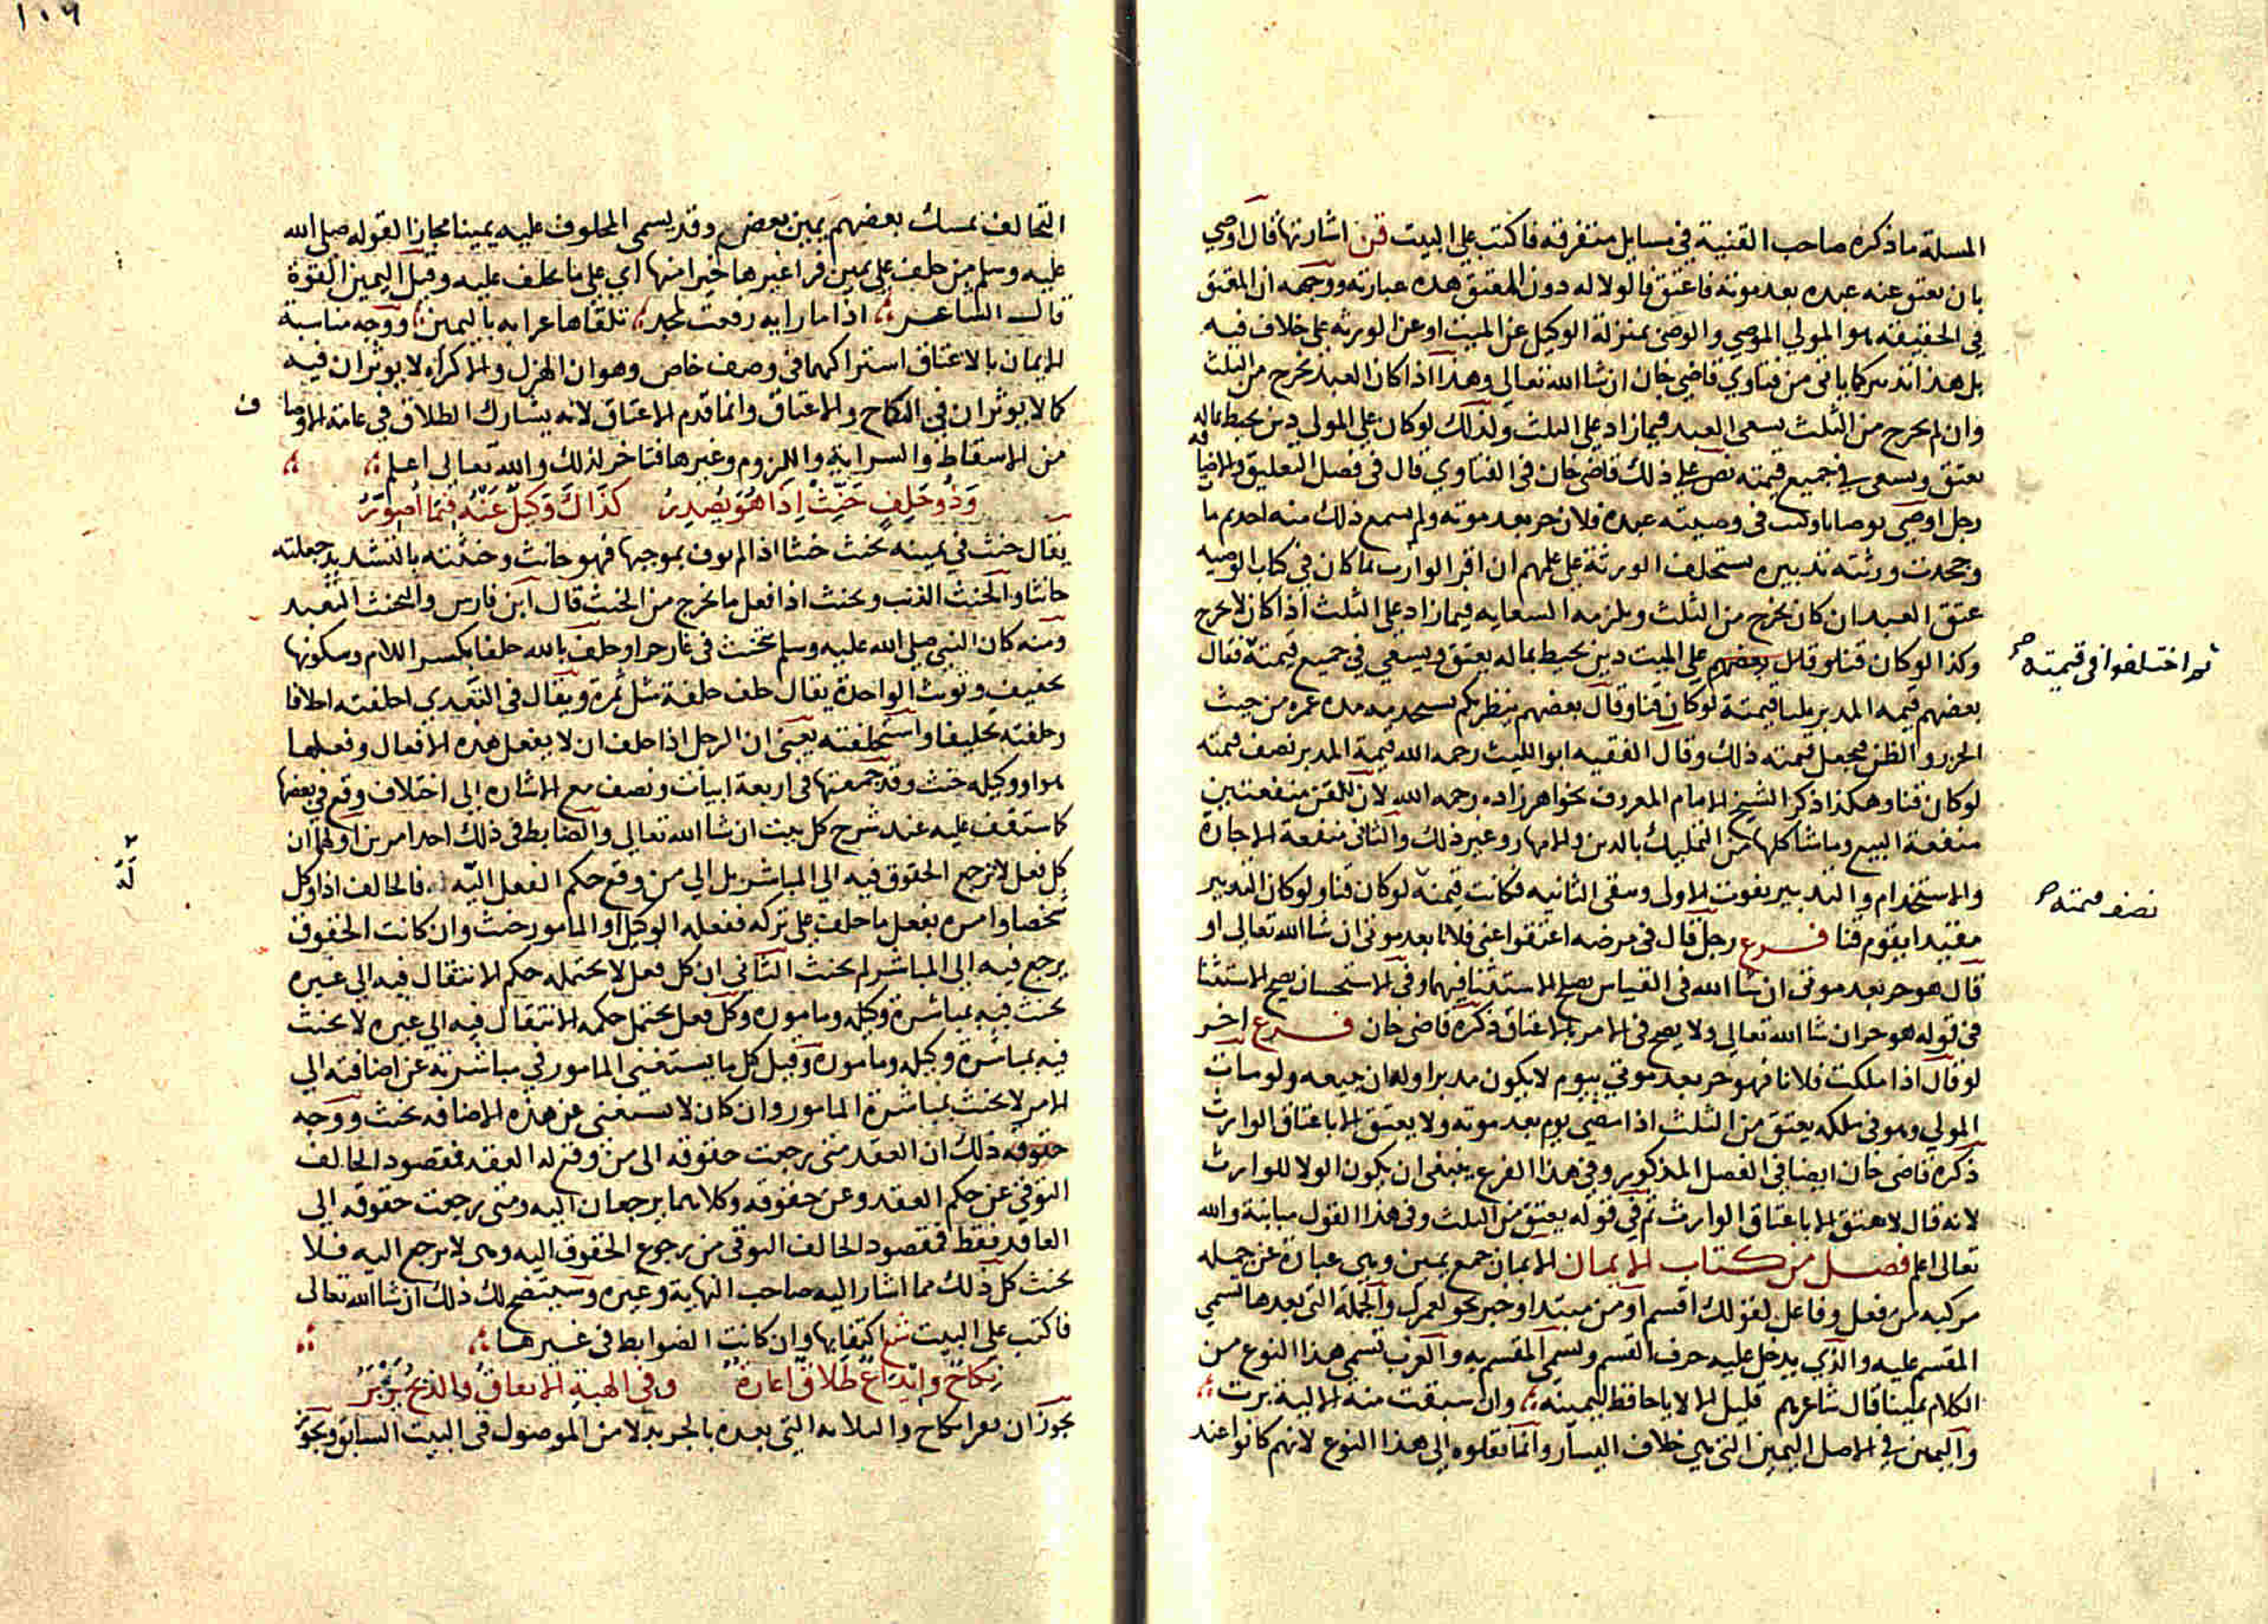 المسلة ما ذكره صاحب القنية في مسايل متفرقه فاكتب على البيت قن اشارتها قال اوصي
بان يعتق عنه عبده بعد موته فاعتق فالولا له دون المعتق هذه عبارته ووجهه ان المعتق
في الحقيقة هو المولي الموصي والوصي بمنزلة الوكيل عن الميت او عن الورثه على خلاف فيه
بل هذا تدبير كما ياتي من فتاوي قاضي خان ان شا الله تعالى وهذا اذا كان العبد يخرج من الثلث
وان لم يخرج من الثلث يسعى العبد فيما زاد على الثلث ولذلك لو كان على المولى دين يحيط بماله
يعتق ويسعى في جميع قيمته نص على ذلك قاضي خان في الفتاوي قال في فصل التعليق والاضافه
رجل اوصي بوصايا وكتب في وصيته عبده فلان حر بعد موته ولم يسمع ذلك منه احد ثم مات
وجحدت ورثته تدبيره يستحلف الورثة على علمهم ان اقر الوارث بما كان في كتاب الوصيه
عتق العبد ان كان يخرج من الثلث ويلزمه السعايه فيما زاد على الثلث اذا كان لا يخرج
وكذا لو كان قنا وقال بعضهم على الميت دين يحيط بماله يعتق ويسعي في جميع قيمته فقال
ثم اختلفوا في قيمته صح
بعضهم قيمه المدبر ثلثا قيمته لو كان قنا وقال بعضهم ينظر بكم يستخدم مدة عمره من حيث
الحزر والظن فيجعل قيمته ذلك وقال الفقيه ابو الليث رحمه الله قيمة المدبر نصف قيمته
لو كان قنا وهكذا ذكر الشيخ الامام المعروف بخواهر زاده رحمه الله لان للقن منفعتين
منفعة البيع وما شاكلها من التمليك بالدين والامهار وغير ذلك والثاني منفعة الاجارة
والاستخدام والتدبير يفوت الاولى وبقى الثانيه فكانت قيمته لو كان قنا ولو كان التدبير
نصف قيمته صح
مقيدا يقوم قنا فرع رجل قال في مرضه اعتقوا عني فلانا بعد موتي ان شا الله تعالى او
قال هو حر بعد موتي ان شا الله في القياس يصح الاستثنا فيهما وفي الاستحسان يصح الاستثنا
في قوله هو حر ان شا الله تعالى ولا يصح في الامر بالاعتاق ذكره قاضي خان فرع اخر
لو قال اذا ملكت فلانا فهو حر بعد موتي بيوم لا يكون مدبرا وله ان يبيعه ولو مات
المولي وهو في ملكه يعتق من الثلث اذا مضي يوم بعد موته ولا يعتق الا باعتاق الوارث
ذكره قاضي خان ايضا في الفصل المذكور وفي هذا الفرع ينبغي ان يكون الولا للوارث
لانه قال لا يعتق الا باعتاق الوارث ثم في قوله يعتق من الثلث وفي هذا القول مباينة والله
تعالى اعلم فصل من كتاب الايمان الايمان جمع يمين وهي عبارة عن جمله
مركبه من فعل وفاعل لقولك اقسم او من مبتدا وخبر نحو لعمرك والجملة التي بعدها تسمي
المقسم عليه والذي يدخل عليه حرف القسم وتسمي المقسم به والعرب تسمي هذا النوع من
الكلام يمينا قال شاعرهم قليل الالايا حافظ ليمينه وان سبقت منه الالية برت
واليمين في الاصل اليمين التي هي خلاف اليسار وانما نقلوه الي هذا النوع لانهم كانوا عند
١٠٦
التحالف يمسك بعضهم يمين بعض وقد يسمى المحلوف عليه يمينا مجازا لقوله صلى الله
عليه وسلم من حلف على يمين فراء غيرها خيرا منها اي على ما يحلف عليه وقيل اليمين القوة
قال الشاعر اذا ما رايه رفعت لمجد تلقاها عرابه باليمين ووجه مناسبة
الايمان بالاعتاق اشتراكهما في وصف خاص وهو ان الهزل والاكراه لا يوثران فيه
كما لا يوثران في النكاح والاعتاق وانما قدم الاعتاق لانه يشارك الطلاق في عامة الاوصاف
من الاسقاط والسراية واللزوم وغيرها فتاخر لذلك والله تعالى اعلم
وذو حلف حنث اذا هو يصدر كذاك وكيل عنه فيما اصور
يقال حنث في يمينه يحنث حنثا اذا لم يوف بموجبها فهو حانث وحنثته بالتشديد جعلته
حانثا والحنث الذنب وتحنث اذا فعل ما يخرج من الحنث قال ابن فارس والتحنث التعبد
ومنه كان النبي صلى الله عليه وسلم يتحنث في غار حرا وحلف بالله حلفا بكسر اللام وسكونها
تخفيف وتونث الواحدة يقال حلف حلفة مثل ثمرة ويقال في التعدي احلفته احلافا
وحلفته تحليفا واستحلفته يعني ان الرجل اذا حلف ان لا يفعل هذه الافعال وفعلها
هو او وكيله حنث وقد جمعتها في اربعة ابيات ونصف مع الاشاره الى اختلاف وقع في بعضها
كما ستقف عليه عند شرح كل بيت ان شا الله تعالى والضابط في ذلك احد امرين اولهما ان
كل فعل لا ترجع الحقوق فيه الي المباشر بل الي من وقع حكم الفعل اليه فالحالف اذا وكل
له
شخصا وامره بفعل ما حلف على تركه ففعله الوكيل او المامور حنث وان كانت الحقوق
يرجع فيه الى المباشر لم يحنث الثاني ان كل فعل لا يحتمل حكم الانتقال فيه الي غيره
يحنث فيه بمباشرة وكيله ومامورة وكل فعل يحتمل حكمه الانتقال فيه الي غيره لا يحنث
فيه بمباشرة وكيله ومامورة وقيل كل ما يستغني المامور في مباشرته عن اضافته الي
الامر لا يحنث بمباشرة المامور وان كان لا يستغني عن هذه الاضافه يحنث ووجه
حقوقه ذلك ان العقد متى رجعت حقوقه الى من وقع له العقد فمقصود الحالف
التوقي عن حكم العقد وعن حقوقه وكلاهما يرجعان اليه ومتى رجعت حقوقه الي
العاقد فقط فمقصود الحالف التوقي من رجوع الحقوق اليه وهي لا ترجع اليه فلا
يحنث كل ذلك مما اشار اليه صاحب النهاية وغيره وسيتضح لك ذلك ان شا الله تعالى
فاكتب على البيت شع اكتفابها وان كانت الضوابط في غيرها
نكاح وايداع طلاق اعارة وفي الهبة الاعتاق والذبح يزبر
يجوز ان يقرا نكاح والثلاثه التي بعده بالجر بدلا من الموصول في البيت السابق ويجوز